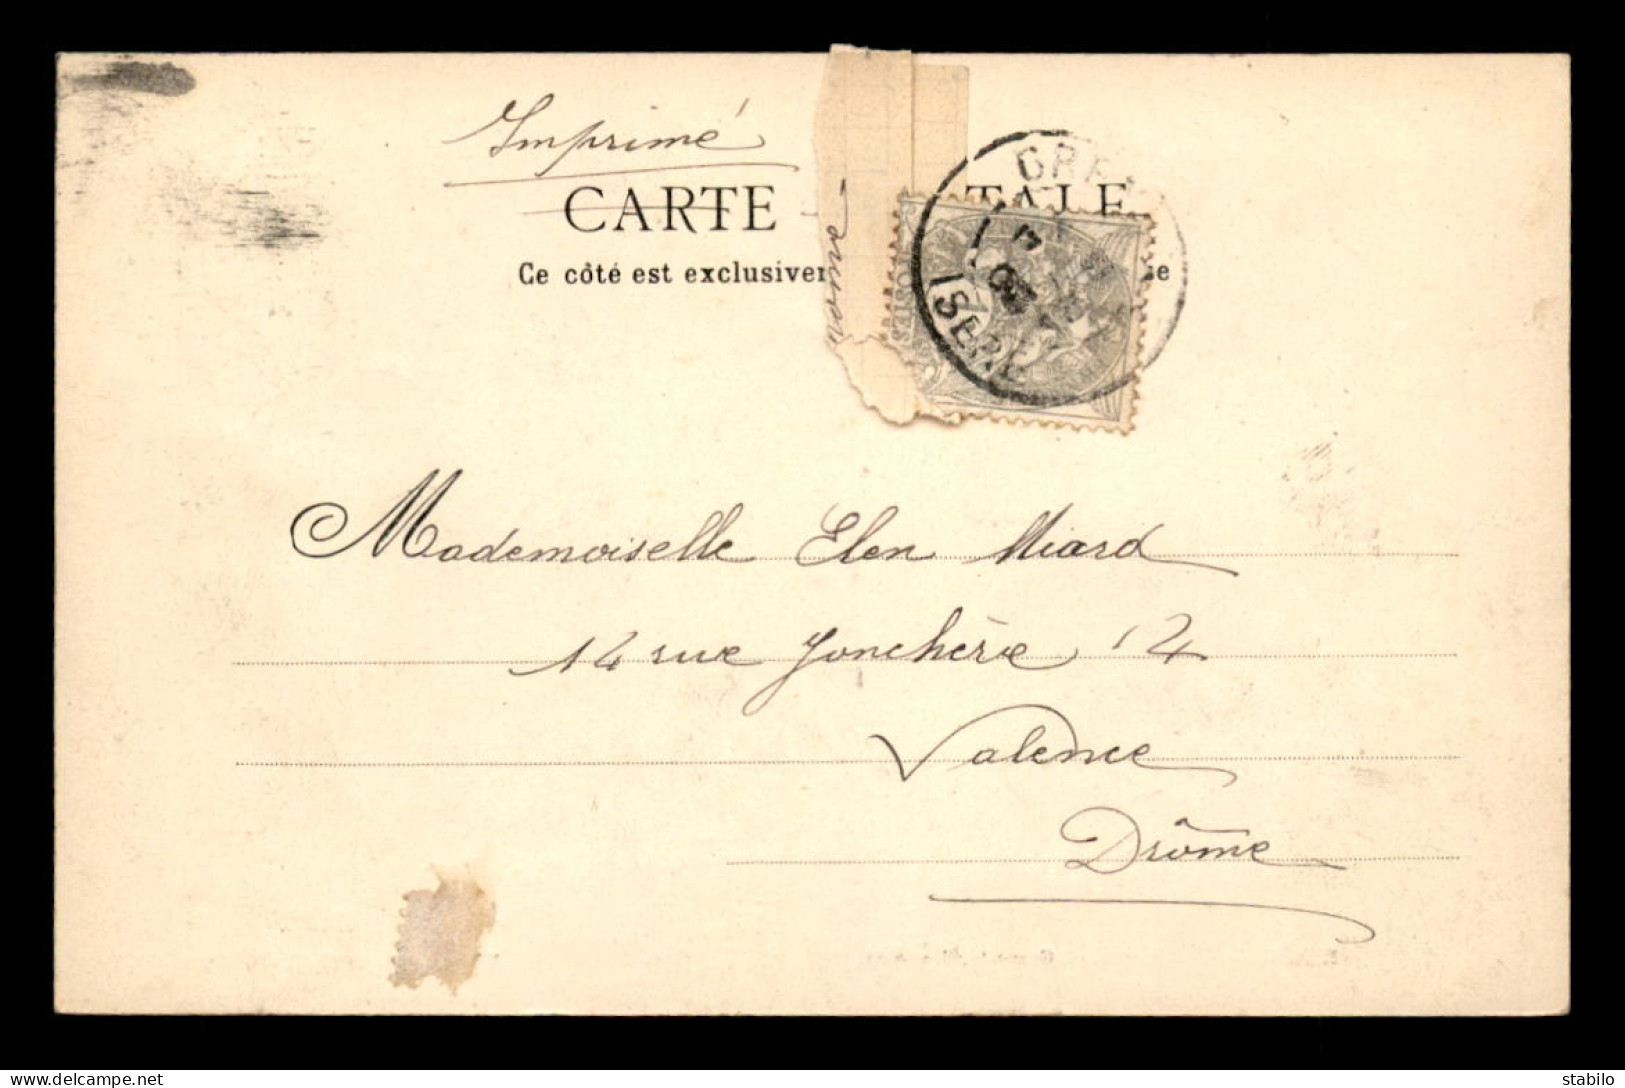 Imprimé
CARTE TALE
Ce côté est exclusiver se
GRE
ISERE
POSTES
Mademoiselle Elen Miard
12 rue Jonchère 12
Valence
Drôme
stabilo